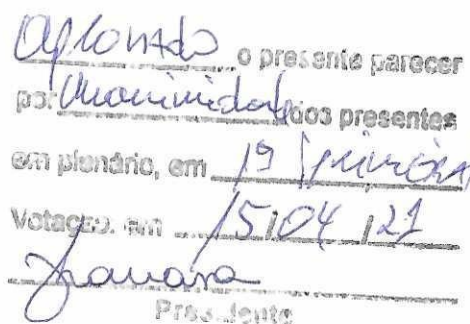 Aprovado o presente parecer
por Unanimidade dos presentes
em plenário, em 1ª Primeira
Votação. em 15/04/21
Presidente